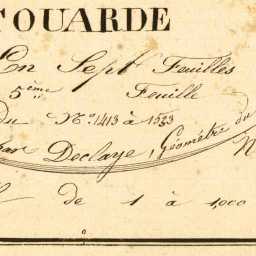 TOUARDE
En Sept Feuilles
5ème Feuille
du N° 1413 à 1523
par Declaye, Géomètre du
N
de 1 à 1,000